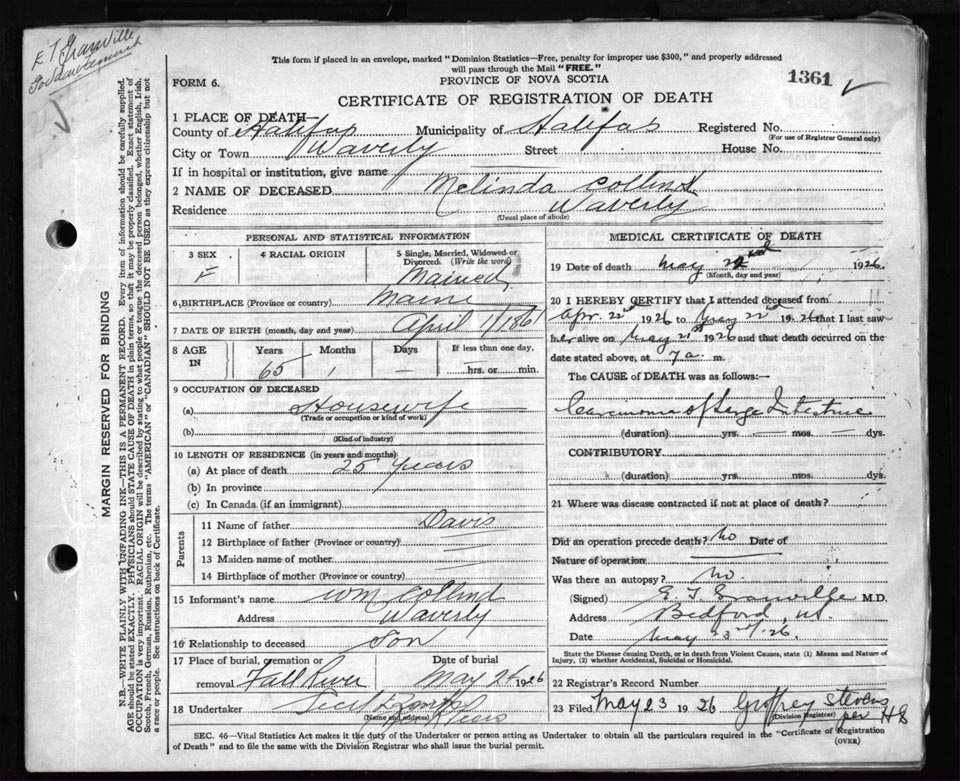 E T Granville
This form if placed in an envelope, marked "Dominion Statistics—Free, penalty for improper use $300," and properly addressed
will pass through the Mail "FREE."
FORM 6.
PROVINCE OF NOVA SCOTIA
1361
CERTIFICATE OF REGISTRATION OF DEATH
1 PLACE OF DEATH—
County of Halifax Municipality of Halifax Registered No.
(For use of Registrar General only)
City or Town Waverly Street House No.
If in hospital or institution, give name
2 NAME OF DECEASED Melinda Collins
Residence Waverly
(Usual place of abode)
PERSONAL AND STATISTICAL INFORMATION
3 SEX F
4 RACIAL ORIGIN
5 Single, Married, Widowed or
Divorced. (Write the word)
Married
6 BIRTHPLACE (Province or country) Maine
7 DATE OF BIRTH (month, day and year) April 1/1861
8 AGE IN Years 65 Months 1 Days — If less than one day, hrs. or min.
9 OCCUPATION OF DECEASED
(a) Housewife
(Trade or occupation or kind of work)
(b)
(Kind of industry)
10 LENGTH OF RESIDENCE (in years and months)
(a) At place of death 25 years
(b) In province
(c) In Canada (if an immigrant)
Parents
11 Name of father Davis
12 Birthplace of father (Province or country)
13 Maiden name of mother
14 Birthplace of mother (Province or country)
15 Informant's name Wm Collins
Address Waverly
16 Relationship to deceased Son
17 Place of burial, cremation or
removal Fall River
Date of burial
May 24 1926
18 Undertaker
(Name and address)
MEDICAL CERTIFICATE OF DEATH
19 Date of death May 22nd 1926
(Month, day and year)
20 I HEREBY CERTIFY that I attended deceased from
Apr. 22nd 1926 to May 22nd 1926 that I last saw
her alive on May 21st 1926 and that death occurred on the
date stated above, at 7 a. m.
The CAUSE OF DEATH was as follows:—
Carcinoma of Large Intestine
(duration) yrs. mos. dys.
CONTRIBUTORY
(duration) yrs. mos. dys.
21 Where was disease contracted if not at place of death?
Did an operation precede death? No Date of
Nature of operation
Was there an autopsy? No.
(Signed) E. T. Granville M.D.
Address Bedford, N.S.
Date May 23rd/26.
State the Disease causing Death, or in death from Violent Causes, state (1) Means and Nature of
Injury, (2) whether Accidental, Suicidal or Homicidal.
22 Registrar's Record Number
23 Filed May 23 1926 Geoffrey Stevens
(Division Registrar) per HS
SEC. 46—Vital Statistics Act makes it the duty of the Undertaker or person acting as Undertaker to obtain all the particulars required in the "Certificate of Registration
of Death" and to file the same with the Division Registrar who shall issue the burial permit.
(OVER)
MARGIN RESERVED FOR BINDING
N.B.—WRITE PLAINLY WITH UNFADING INK—THIS IS A PERMANENT RECORD. Every item of information should be carefully supplied.
AGE should be stated EXACTLY. PHYSICIANS should STATE CAUSE OF DEATH in plain terms, so that it may be properly classified. Exact statement of
OCCUPATION is very important. RACIAL ORIGIN will be described by stating to what people or tongue the deceased person belonged, whether English, Irish,
Scotch, French, German, Russian, Ruthenian, etc. The terms "AMERICAN" or "CANADIAN" SHOULD NOT BE USED as they express citizenship but not
a race or people. See instructions on back of Certificate.